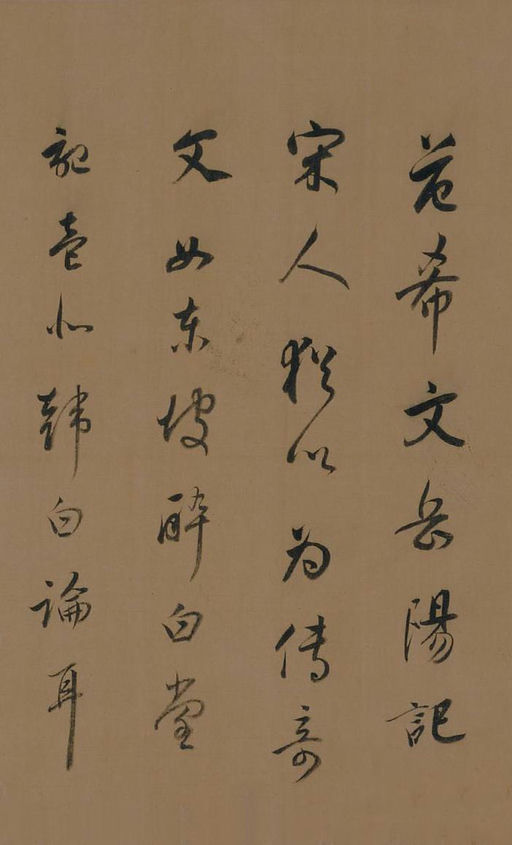 范希文岳陽記
宋人猶以為傳奇
文如東坡醉白堂
記壹似韓白論耳